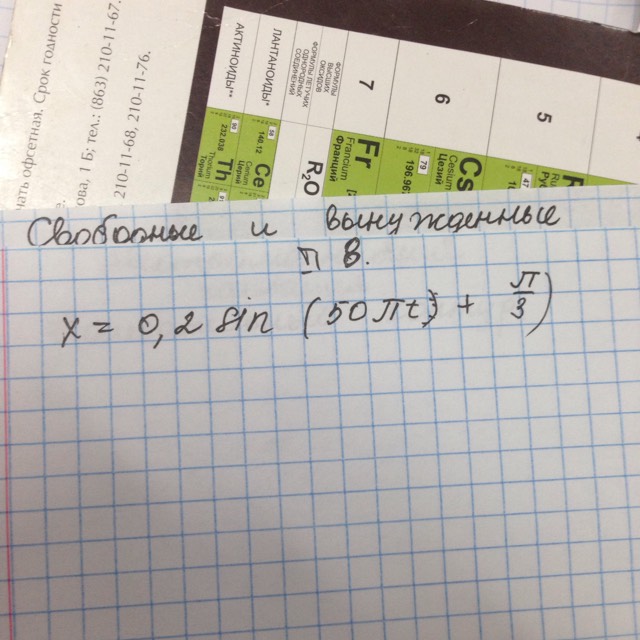 нать офсетная. Срок годности
ова, 1 Б; тел.: (863) 210-11-67.
210-11-68, 210-11-76,
АКТИНОИДЫ**
ЛАНТАНОИДЫ*
ФОРМУЛЫ ЛЕТУЧИХ ВОДОРОДНЫХ СОЕДИНЕНИЙ
ФОРМУЛЫ ВЫСШИХ ОКСИДОВ
7
6
5
90
232.038
Th
Thorium
Торий
58
140.12
Ce
Cerium
Церий
R₂O
Fr
Francium
Франций
79
196.96
Cs
Cesium
Цезий
47
Свободные и вынужденные
I в.
x = 0,2 sin (50πt) + π/3)